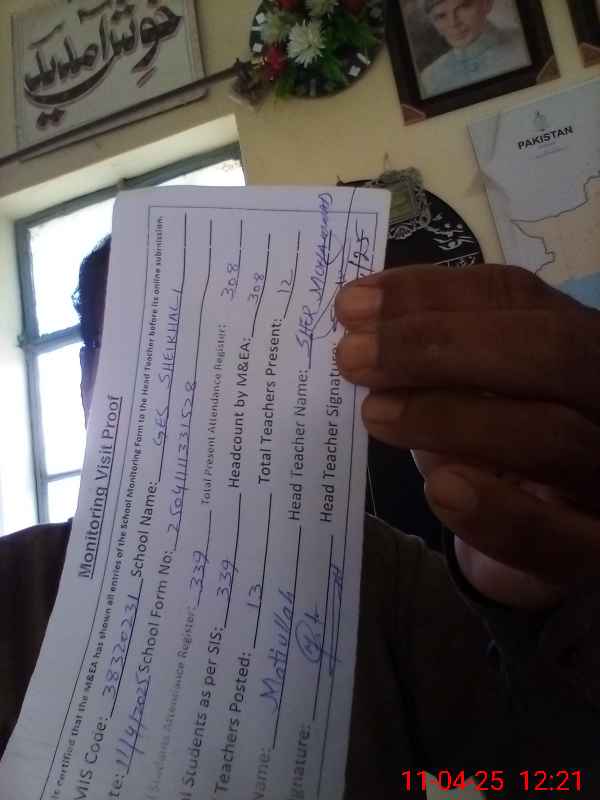 خوش آمدید
PAKISTAN
Monitoring Visit Proof
is certified that the M&EA has shown all entries of the School Monitoring Form to the Head Teacher before its online submission.
MIS Code: 38320231 School Name: GES SHEIKHAL I
te: 11/4/2025 School Form No: 25041111331528
l Students Attendance Register: 339 Total Present Attendance Register: 308
l Students as per SIS: 339 Headcount by M&EA: 308
Teachers Posted: 13 Total Teachers Present: 12
Name: Matiullah Head Teacher Name: SHER MUHAMMAD
gnature: Head Teacher Signature:
11-04-25 12:21